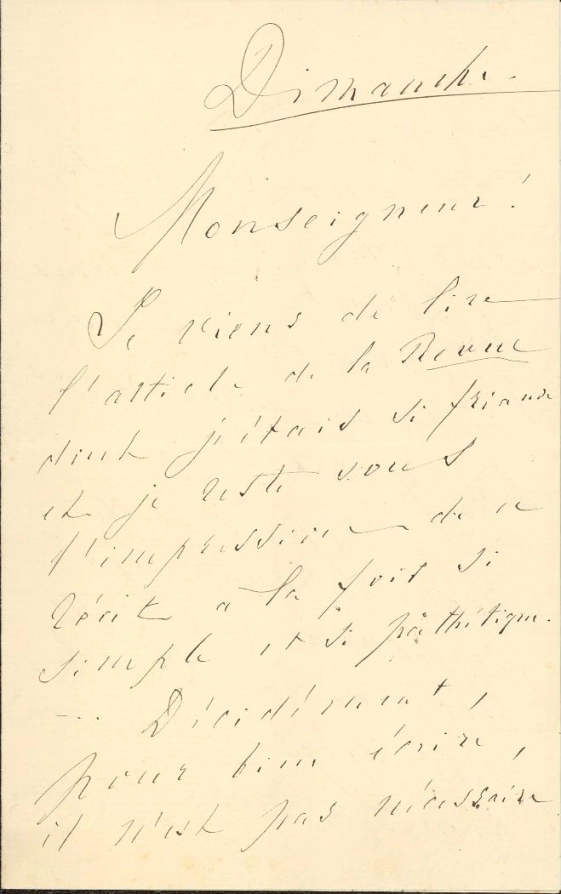 Dimanche.
Monseigneur!
Je viens de lire
l'article de la Revue
dont j'étais si friande
et je reste sous
l'impression de ce
récit à la fois si
simple et si pathétique.
... Décidément,
pour bien écrire,
il n'est pas nécessaire